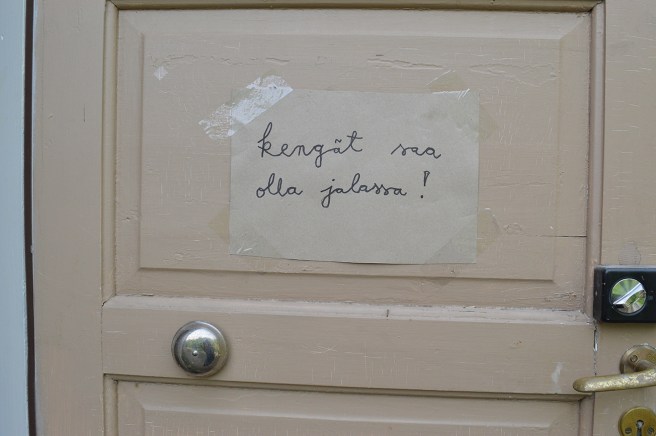 kengät saa
olla jalassa!